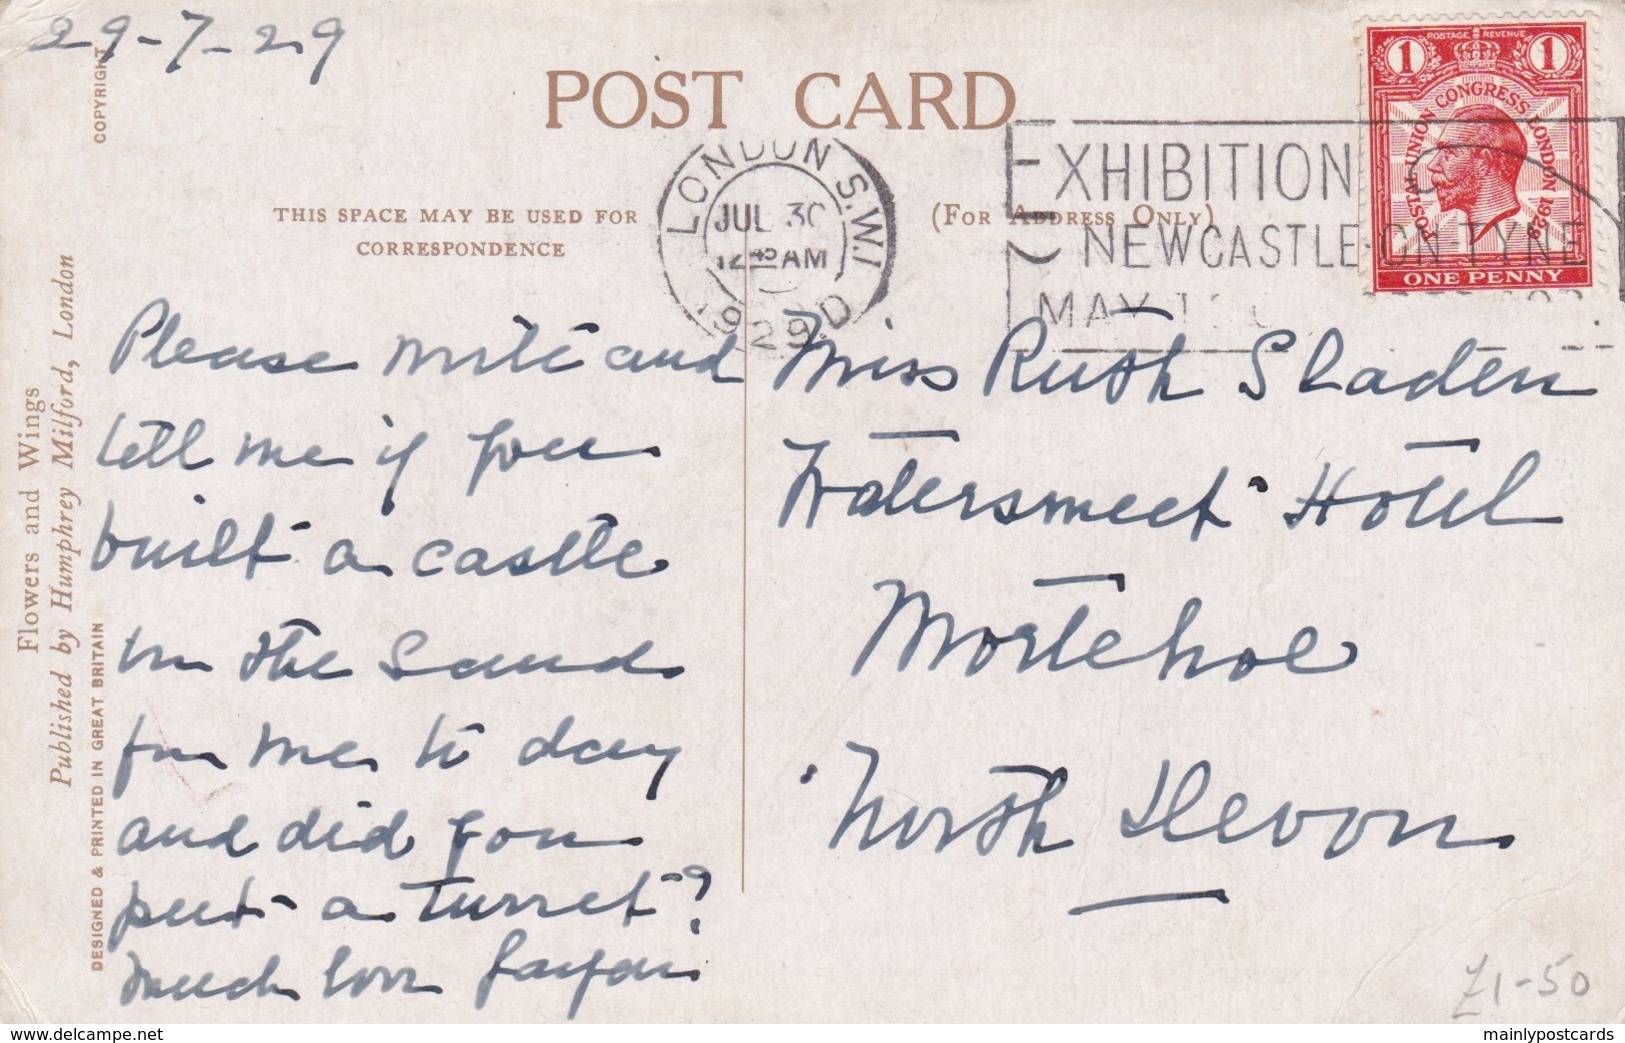 29-7-29
COPYRIGHT
POST CARD
THIS SPACE MAY BE USED FOR
CORRESPONDENCE
(FOR ADDRESS ONLY)
LONDON S.W.1
JUL 30
12 45 AM
1929 D
EXHIBITION
NEWCASTLE-ON-TYNE
MAY
POSTAGE REVENUE
1 1
POSTAL UNION CONGRESS LONDON 1929
ONE PENNY
Flowers and Wings
Published by Humphrey Milford, London
DESIGNED & PRINTED IN GREAT BRITAIN
Please write and
tell me if you
built a castle
in the sand
for me to day
and did you
put a turret?
Much love
Miss Ruth Sladen
Watersmeet Hotel
Mortehoe
North Devon
£1-50
mainlypostcards